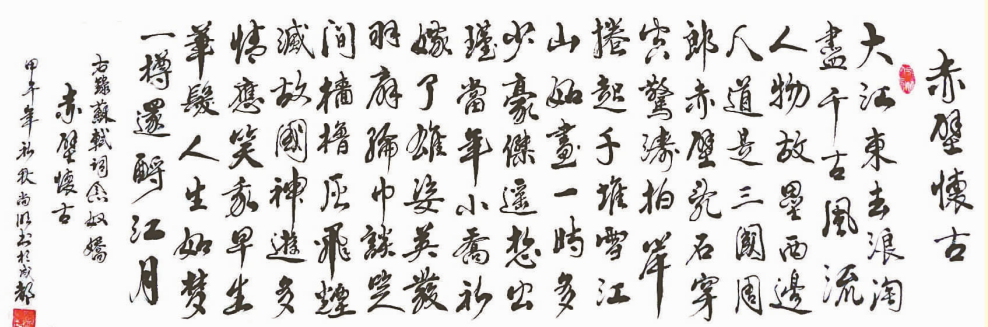 赤壁懷古
大江東去浪淘
盡千古風流
人物故壘西邊
人道是三國周
郎赤壁亂石穿
空驚濤拍岸
捲起千堆雪江
山如畫一時多
少豪傑遥想公
瑾當年小喬初
嫁了雄姿英發
羽扇綸巾談笑
間檣櫓灰飛煙
滅故國神遊多
情應笑我早生
華髮人生如梦
一樽還酹江月
右錄蘇軾詞念奴嬌
赤壁懷古
甲午年初秋尚书於成都